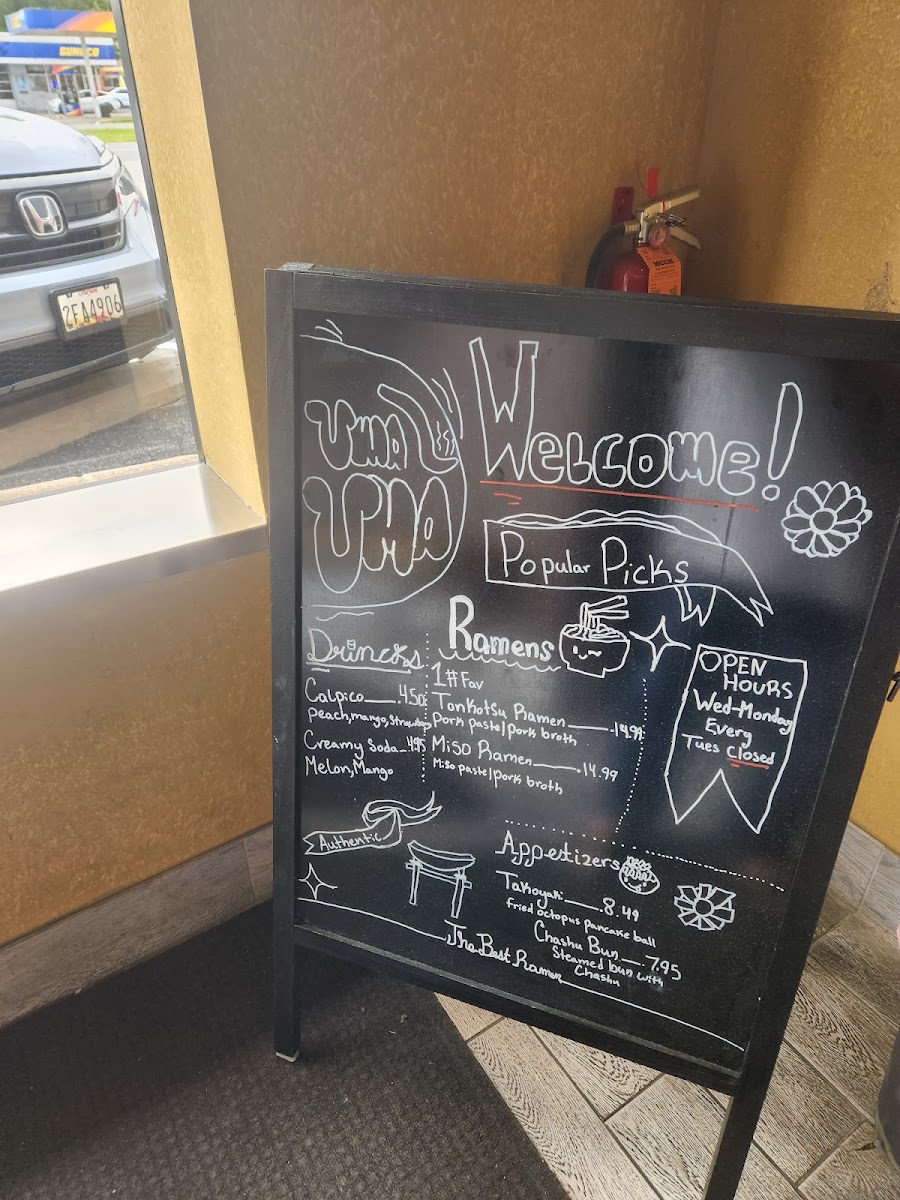 SUNOCO
2FA4906
MCCM
UMA
UMA
Welcome!
Popular Picks
Drincks
Calpico 4.50
Peach, mango, Strawberry
Creamy Soda 4.95
Melon, Mango
Ramens
1# Fav
Tonkotsu Ramen 14.99
Pork paste/pork broth
Miso Ramen 14.99
Miso paste/pork broth
OPEN
HOURS
Wed-Monday
Every
Tues Closed
Authentic
Appetizers
Takoyaki 8.49
fried octopus pancake ball
Chashu Bun 7.95
Steamed bun with
Chashu
The Best Ramen